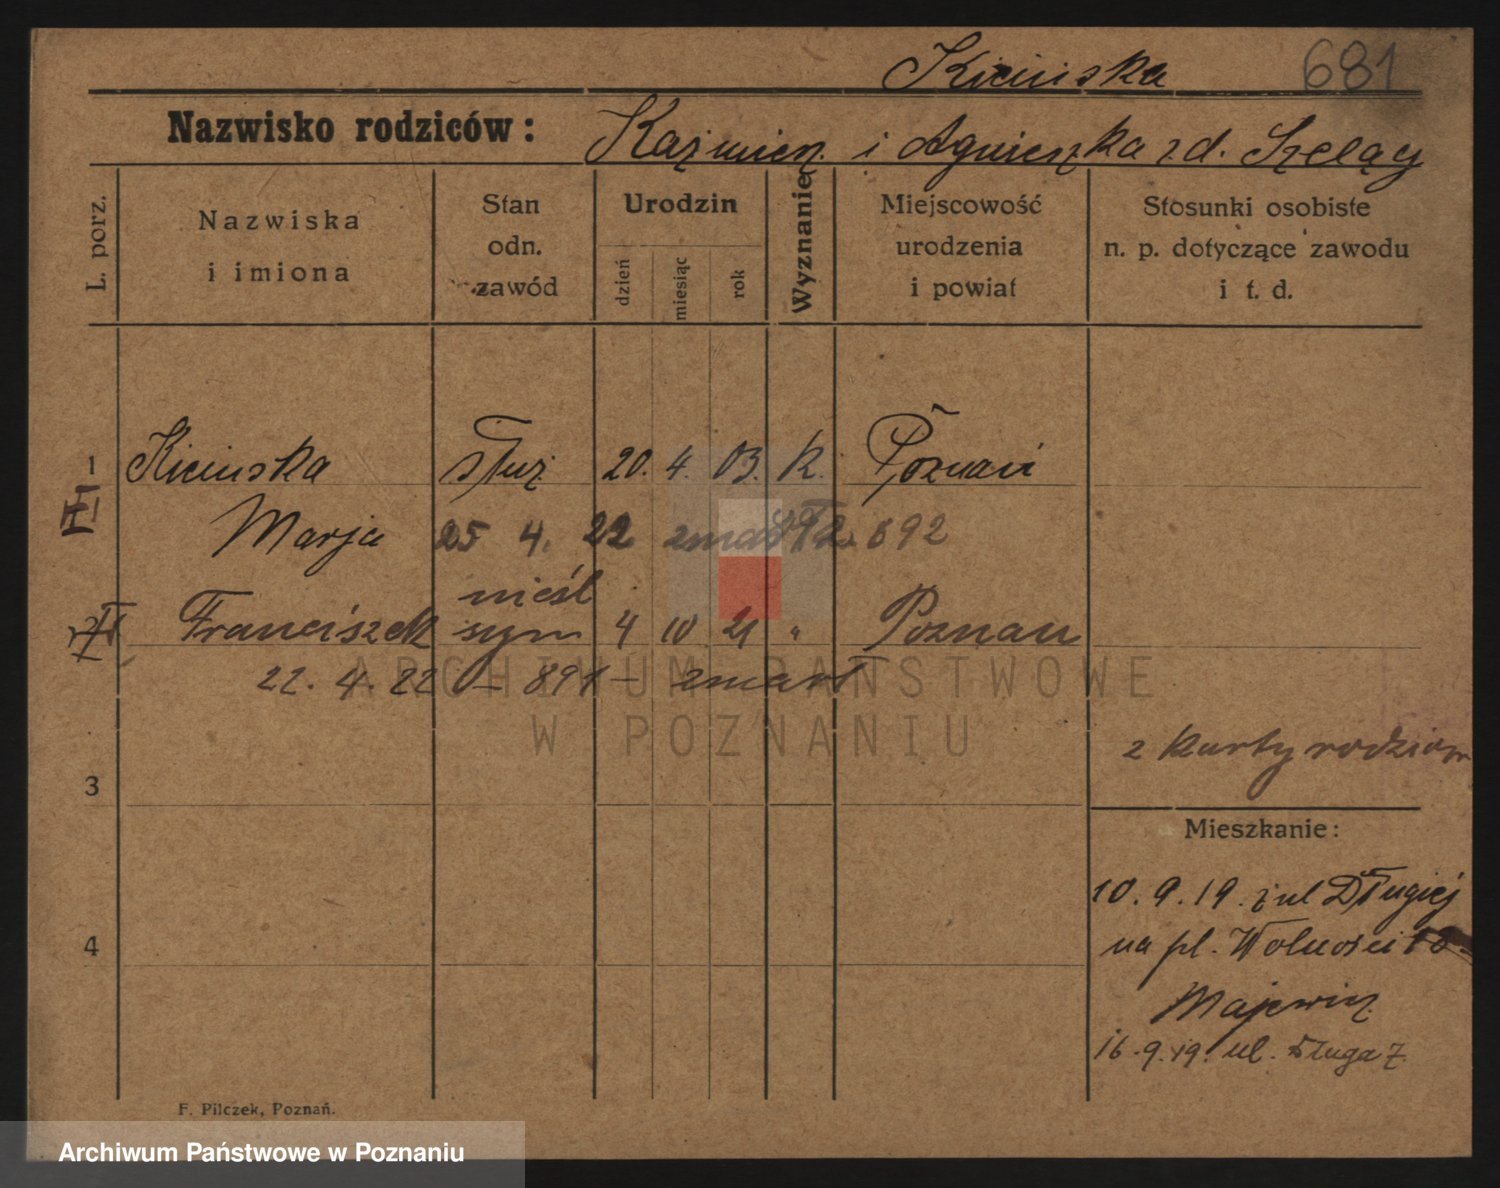 Kicińska 681
Nazwisko rodziców: Kaźmierz. i Agnieszka z d. Szeląg
L. porz.
Nazwiska i imiona
Stan odn. zawód
Urodzin
dzień
miesiąc
rok
Wyznanie
Miejscowość urodzenia i powiat
Stosunki osobiste n. p. dotyczące zawodu i t. d.
1 Kicińska służ. 20. 4. 03. k. Poznań
I Marja 25 4. 22 zmarł 892
nieśl
2 II Franciszek syn 4 10 21 " Poznań
22. 4. 22 – 891 – zmarł
ARCHIWUM PAŃSTWOWE
W POZNANIU
z karty rodziców
3
Mieszkanie:
10. 9. 19. z ul Długiej
4
na pl. Wolności 10
Majewicz.
16. 9. 19. ul. Długa 7.
F. Pilczek, Poznań.
Archiwum Państwowe w Poznaniu